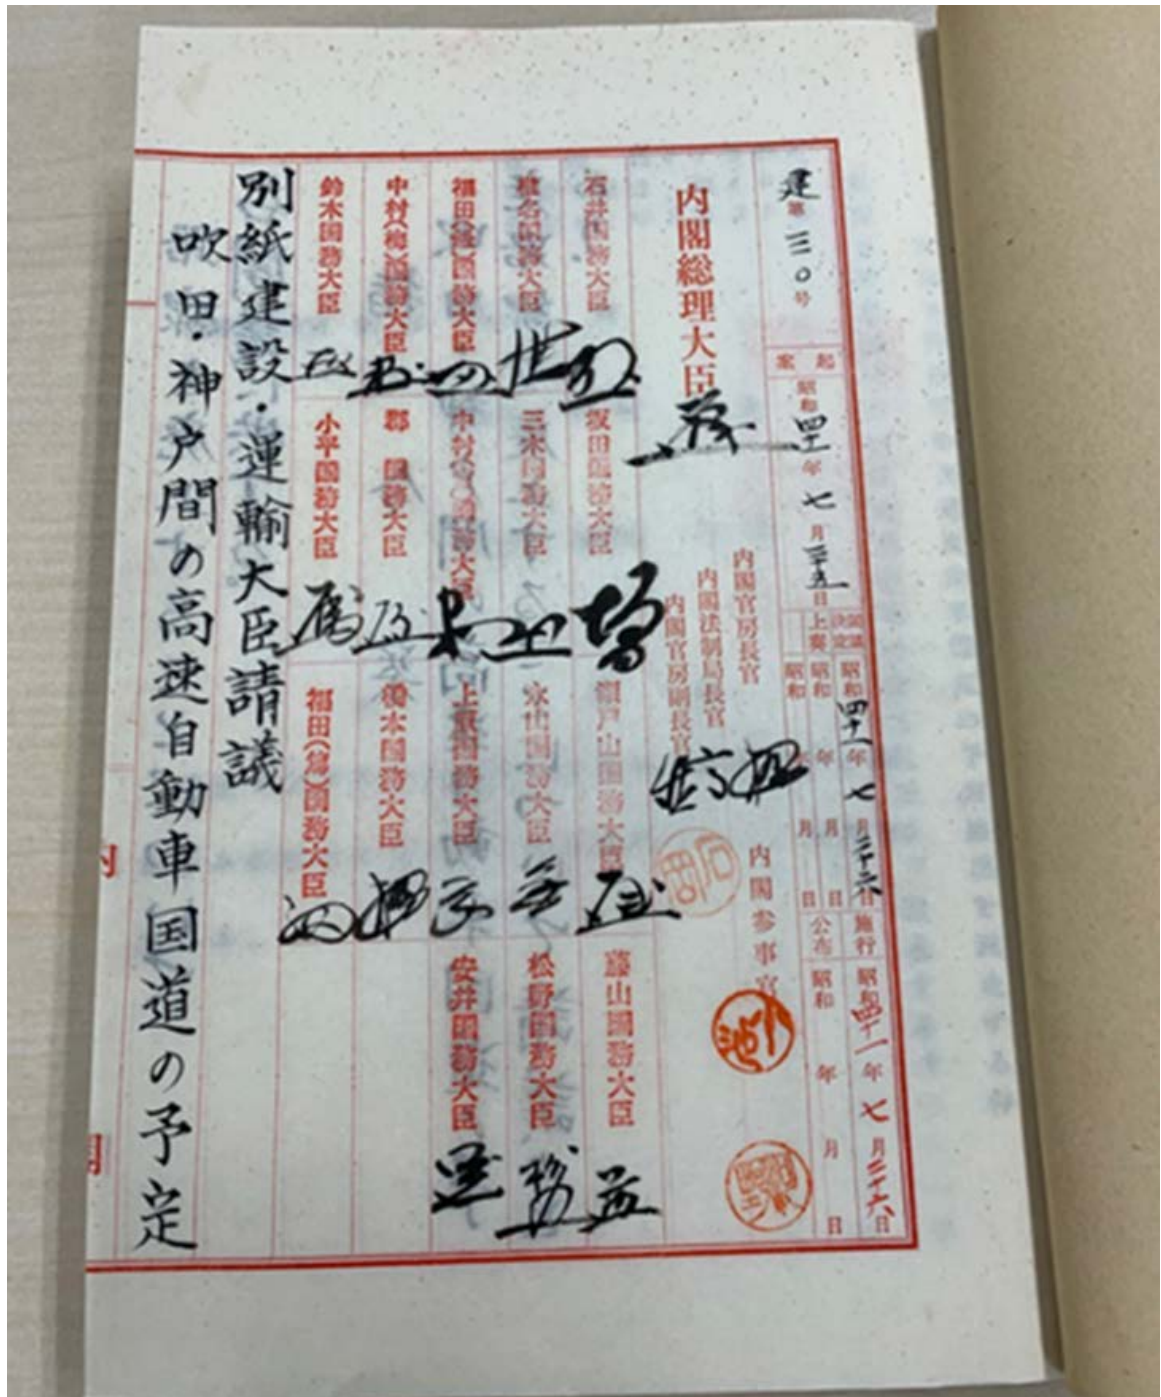 建第三〇号
起案 昭和四十一年七月二十五日
閣議決定 昭和四十一年七月二十六日
上奏 昭和 年 月 日
施行 昭和四十一年七月二十六日
公布 昭和 年 月 日
内閣総理大臣
内閣官房長官
内閣法制局長官
内閣官房副長官
内閣参事官
石井国務大臣
坂田国務大臣
瀬戸山国務大臣
藤山国務大臣
椎名国務大臣
三木国務大臣
永山国務大臣
松野国務大臣
福田(赳)国務大臣
上原国務大臣
安井国務大臣
中村(梅)国務大臣
郡 国務大臣
橋本国務大臣
鈴木国務大臣
小平国務大臣
福田(篤)国務大臣
別紙建設・運輸大臣請議
吹田・神戸間の高速自動車国道の予定
内
閣